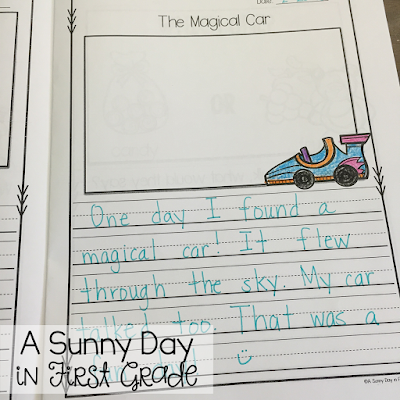 Date:
The Magical Car
One day I found a
magical car! It flew
through the sky. My car
talked too. That was a
A Sunny Day
in First Grade